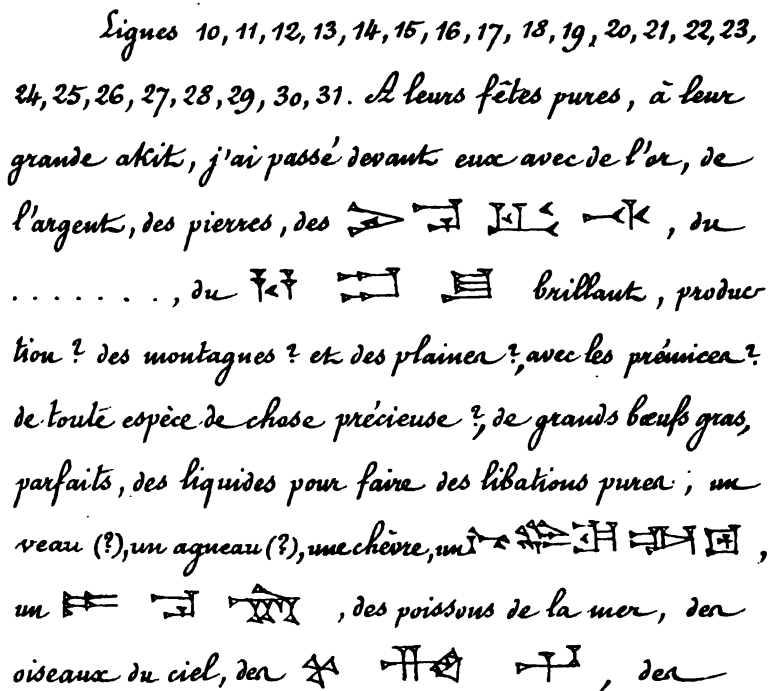 Lignes 10, 11, 12, 13, 14, 15, 16, 17, 18, 19, 20, 21, 22, 23,
24, 25, 26, 27, 28, 29, 30, 31. A leurs fêtes pures, à leur
grande akit, j'ai passé devant eux avec de l'or, de
l'argent, des pierres, des , du
. . . . . . . ., du brillant, produc-
tion ? des montagnes ? et des plaines ?, avec les prémices ?
de toute espèce de chose précieuse ?, de grands bœufs gras,
parfaits, des liquides pour faire des libations pures ; un
veau (?), un agneau (?), une chèvre, un ,
un , des poissons de la mer, des
oiseaux du ciel, des , des